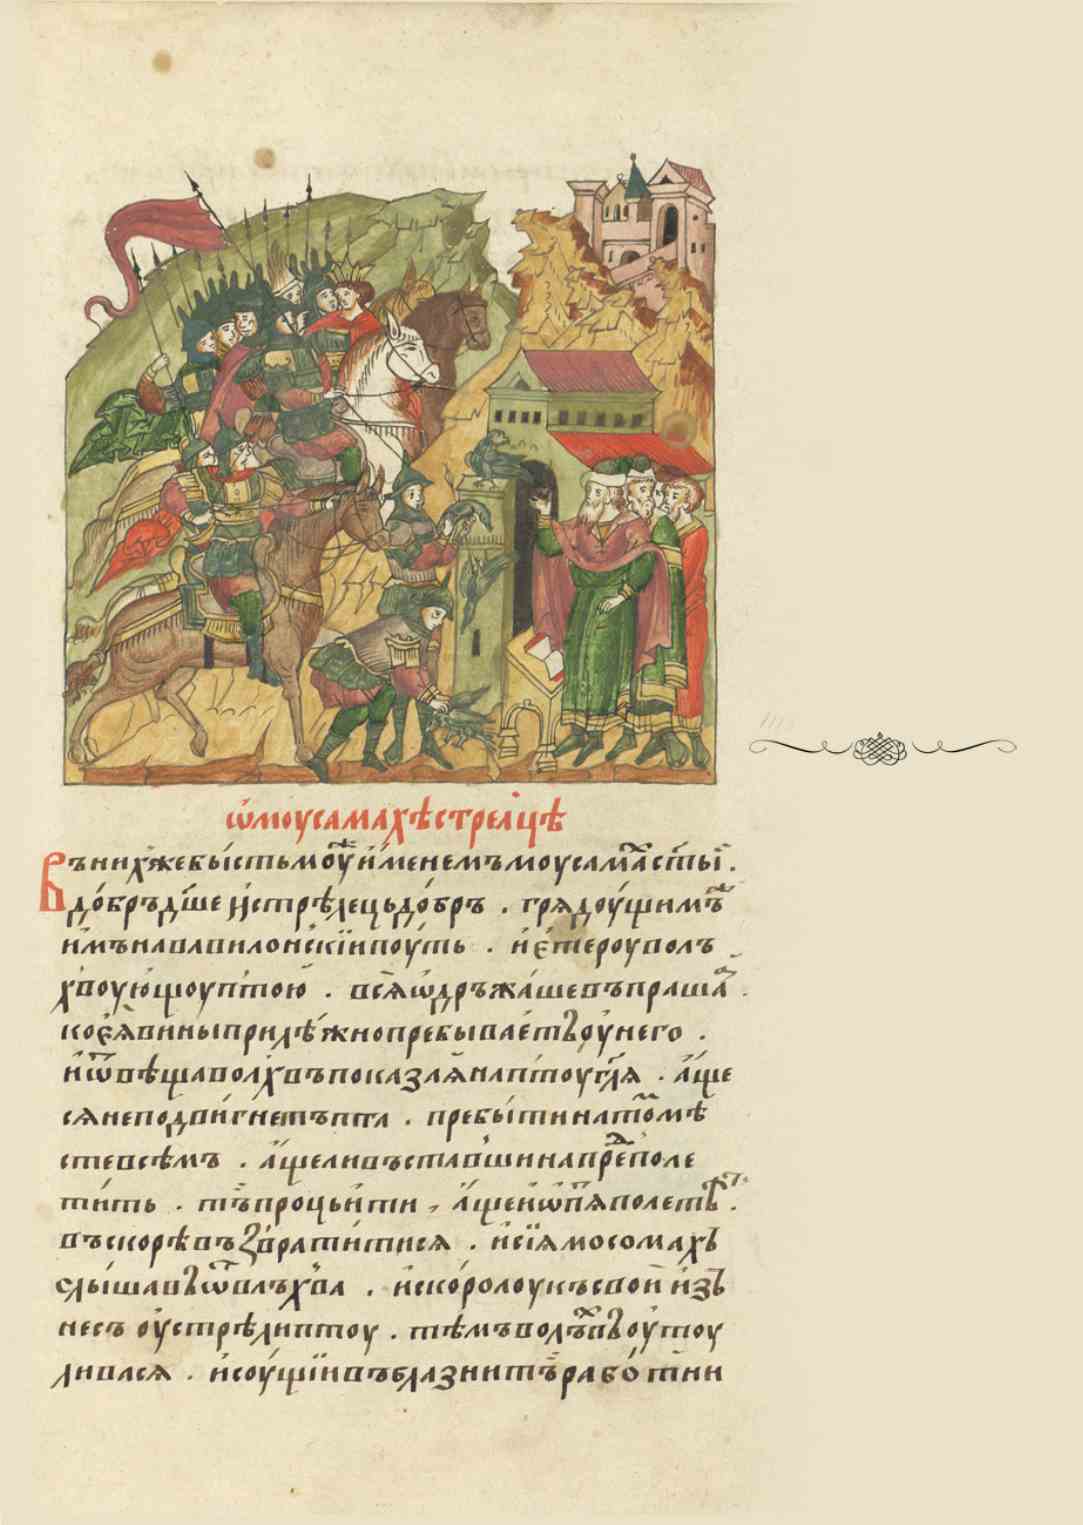 ѡ҆моусамахѣстрелцѣ
Въни́хжебы́стьмоу́жи́менемъмоусама́хсты́ .
до́бръдш҃еи҆стрѣле́цьдо́бръ . грядоу́щимже
и҆мънававило́нскїипоу́ть . и҆є҆́тероуволъ
хвоую́щоуптою . вся̀ѡ҆дръжа́шевъпраша .
коеѧ҆̀вины̀придѣ́жнопребыва́етъоу҆него .
и҆ѿвѣщаво́лхвъпоказа́янаптоугл҃я . а҆́ще
сянеподви́гнетъптa . пребы́тинатомъмѣ
стевсѣмъ . а҆́щеливъста́вшинапре́поле
ти́ть . тъ̀процьи҆ти . а҆́щеи҆ѡ҆пя́полетитъ .
въскорѣвъзврати́тися . и҆сїямосома́хъ
слы́шавъѿвлъ́хва . и҆ско́ролоукъсвои҆изъ
несъ оу҆стрѣ́липтоу . тѣ́мъволъхвъоутоу
ливася . и҆соу́щїивъблазни́търа́ботнии